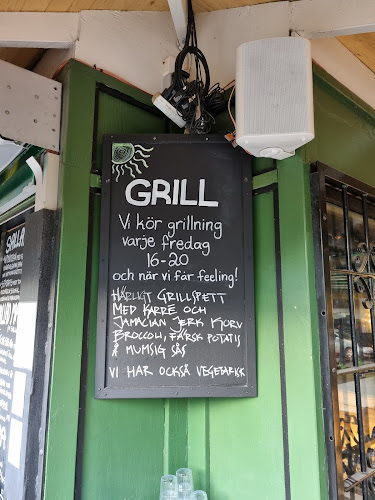 GRILL
Vi kör grillning
varje fredag
16-20
och när vi får feeling!
HÄRLIGT GRILLSPETT
MED KARRÉ OCH
JAMAICAN JERK KORV
BROCCOLI, FÄRSK POTATIS
& MUMSIG SÅS
VI HAR OCKSÅ VEGETARISK